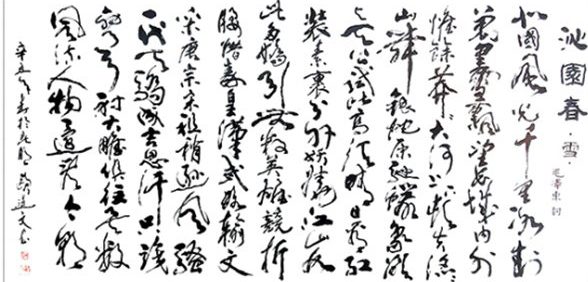 沁園春·雪
毛澤東詞
北國風光千里冰封
萬里雪飄望長城內外
惟餘莽莽大河上下頓失滔滔
山舞銀蛇原馳蠟象欲
與天公試比高須晴日看紅
裝素裹分外妖嬈江山如
此多嬌引無數英雄競折
腰惜秦皇漢武略輸文
采唐宗宋祖稍遜風騷
一代天驕成吉思汗只識
彎弓射大雕俱往矣數
風流人物還看今朝